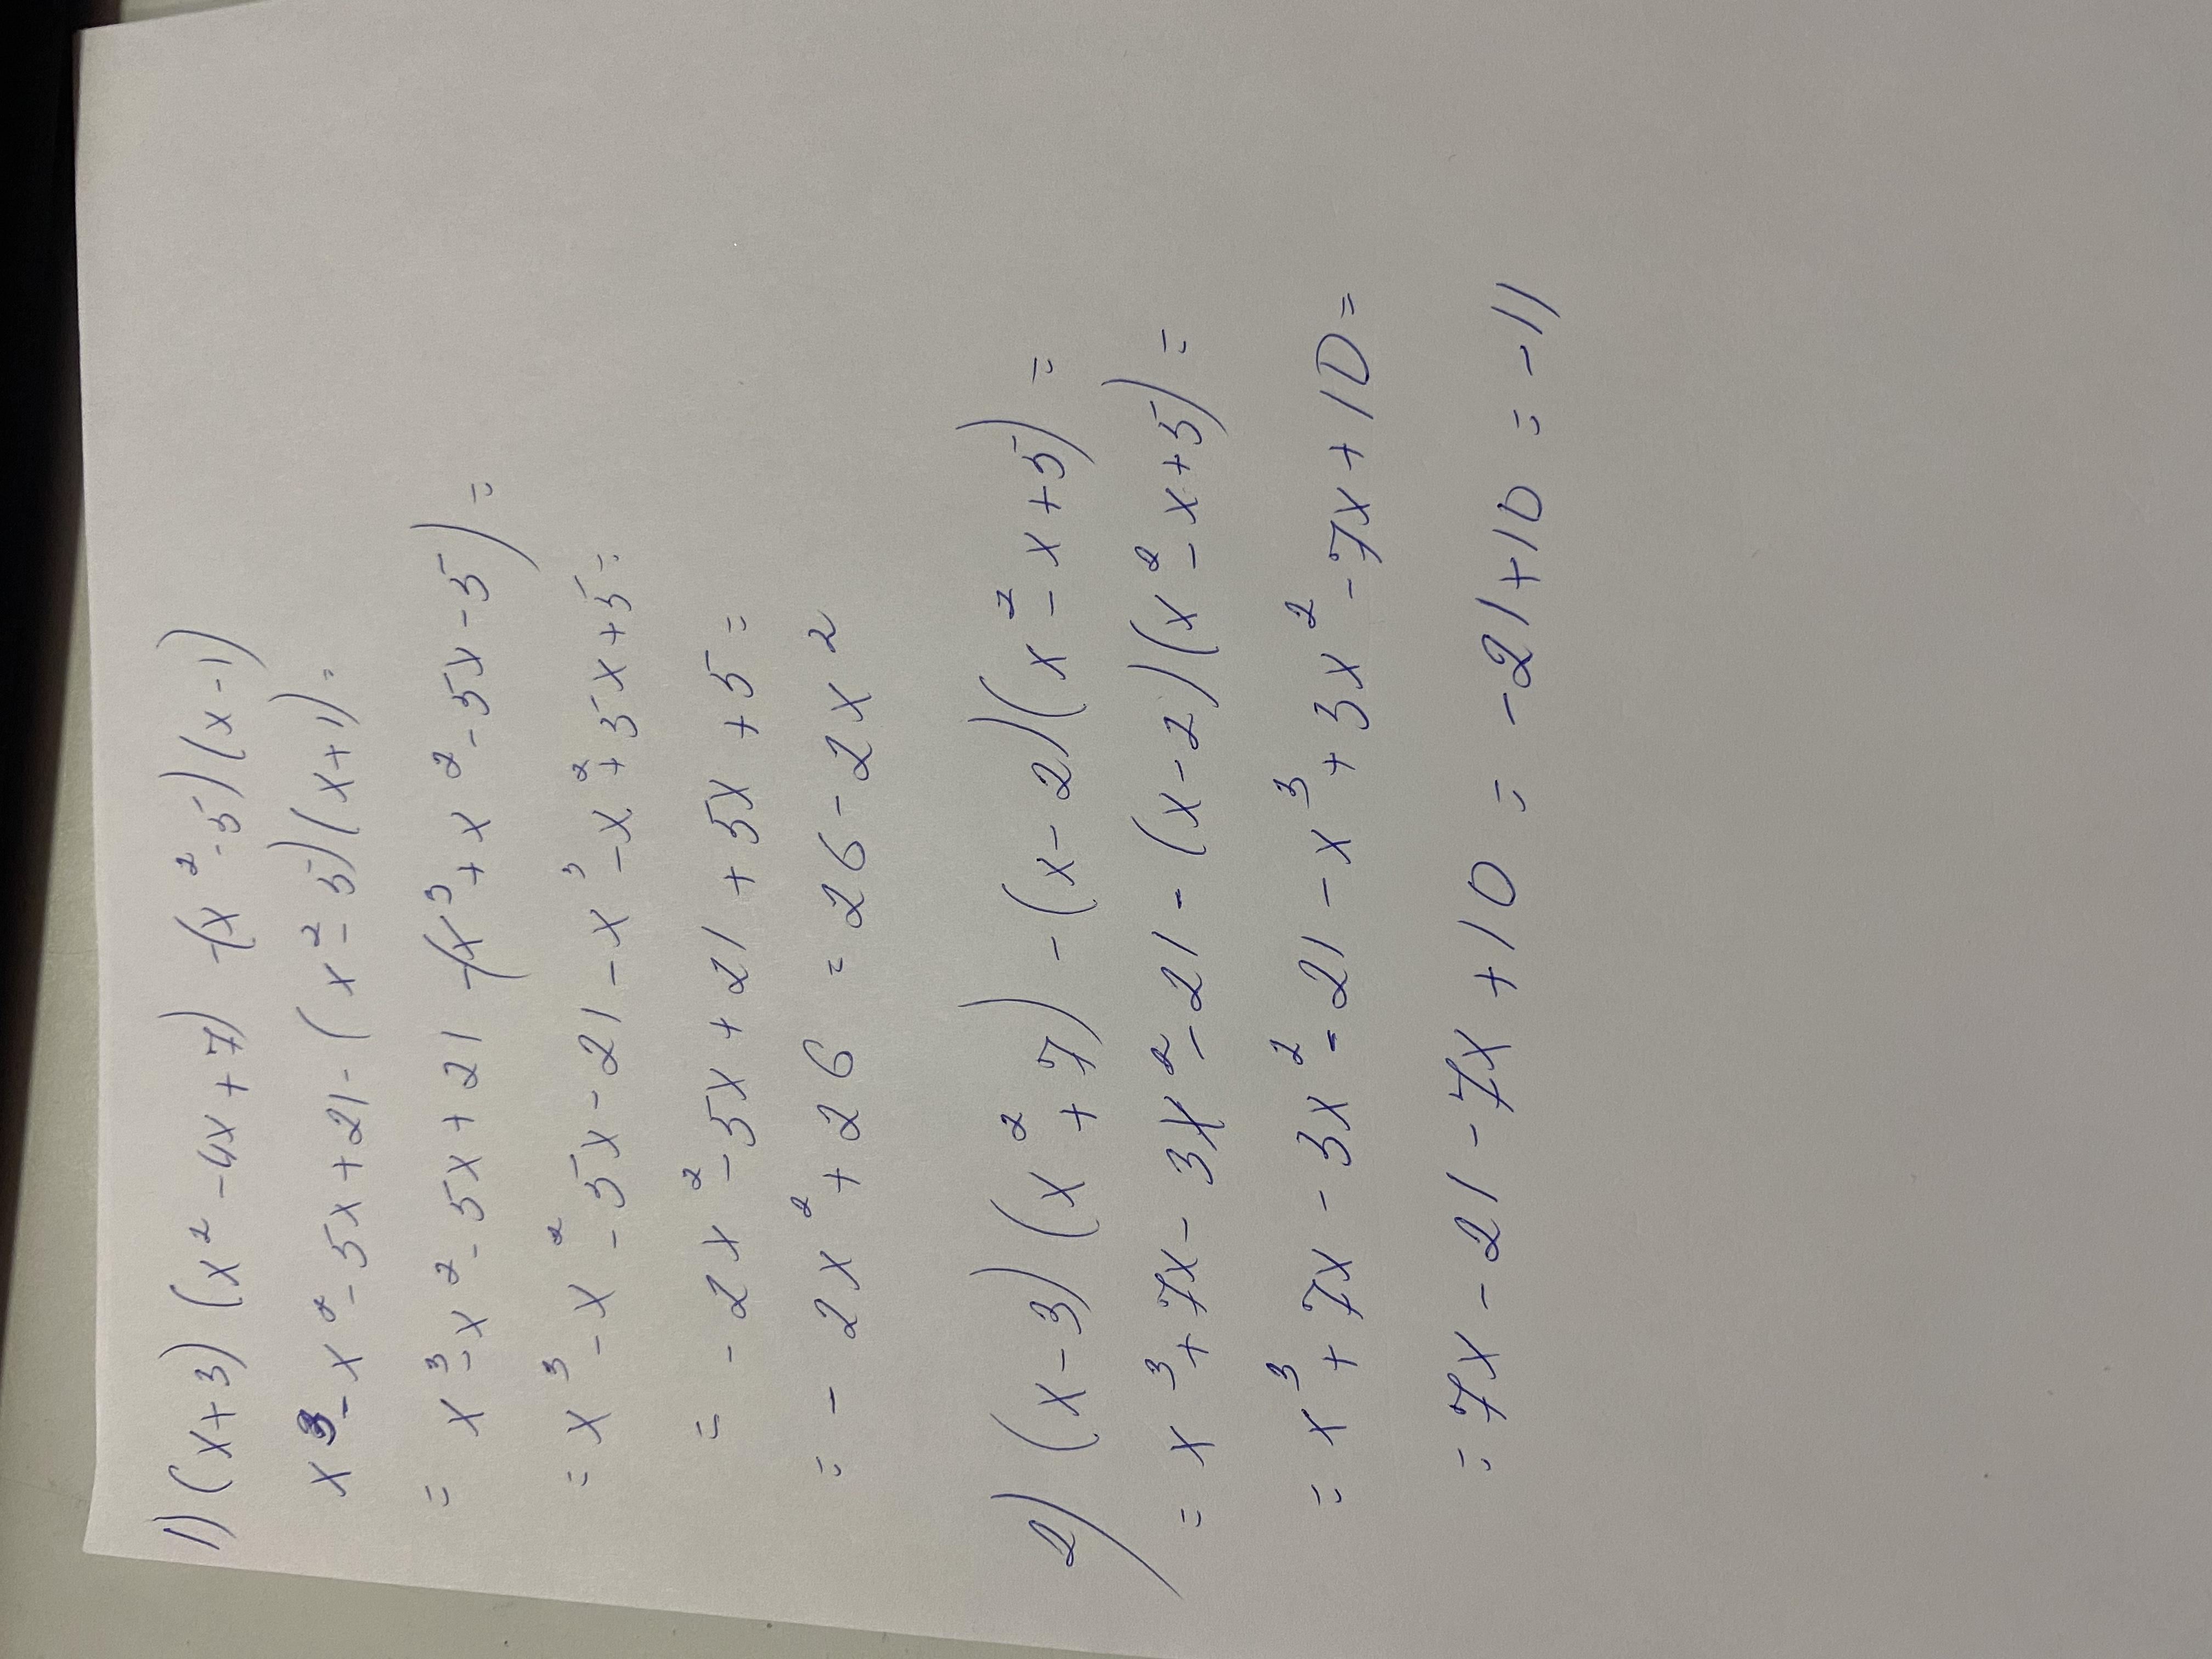 1) (x+3) (x² -4x +7) -(x²-5)(x-1)
x³-x²-5x+21-(x²-5)(x+1)=
= x³-x²-5x+21-(x³+x²-5x-5)=
= x³-x²-5x-21-x³-x²+5x+5=
= -2x²-5x+21+5x+5=
= -2x²+26 = 26-2x²
2) (x-3)(x²+7) -(x-2)(x²-x+5)=
= x³+7x-3x²-21-(x-2)(x²-x+5)=
= x³+7x-3x²-21-x³+3x²-7x+10=
= 7x-21-7x+10 = -21+10 = -11